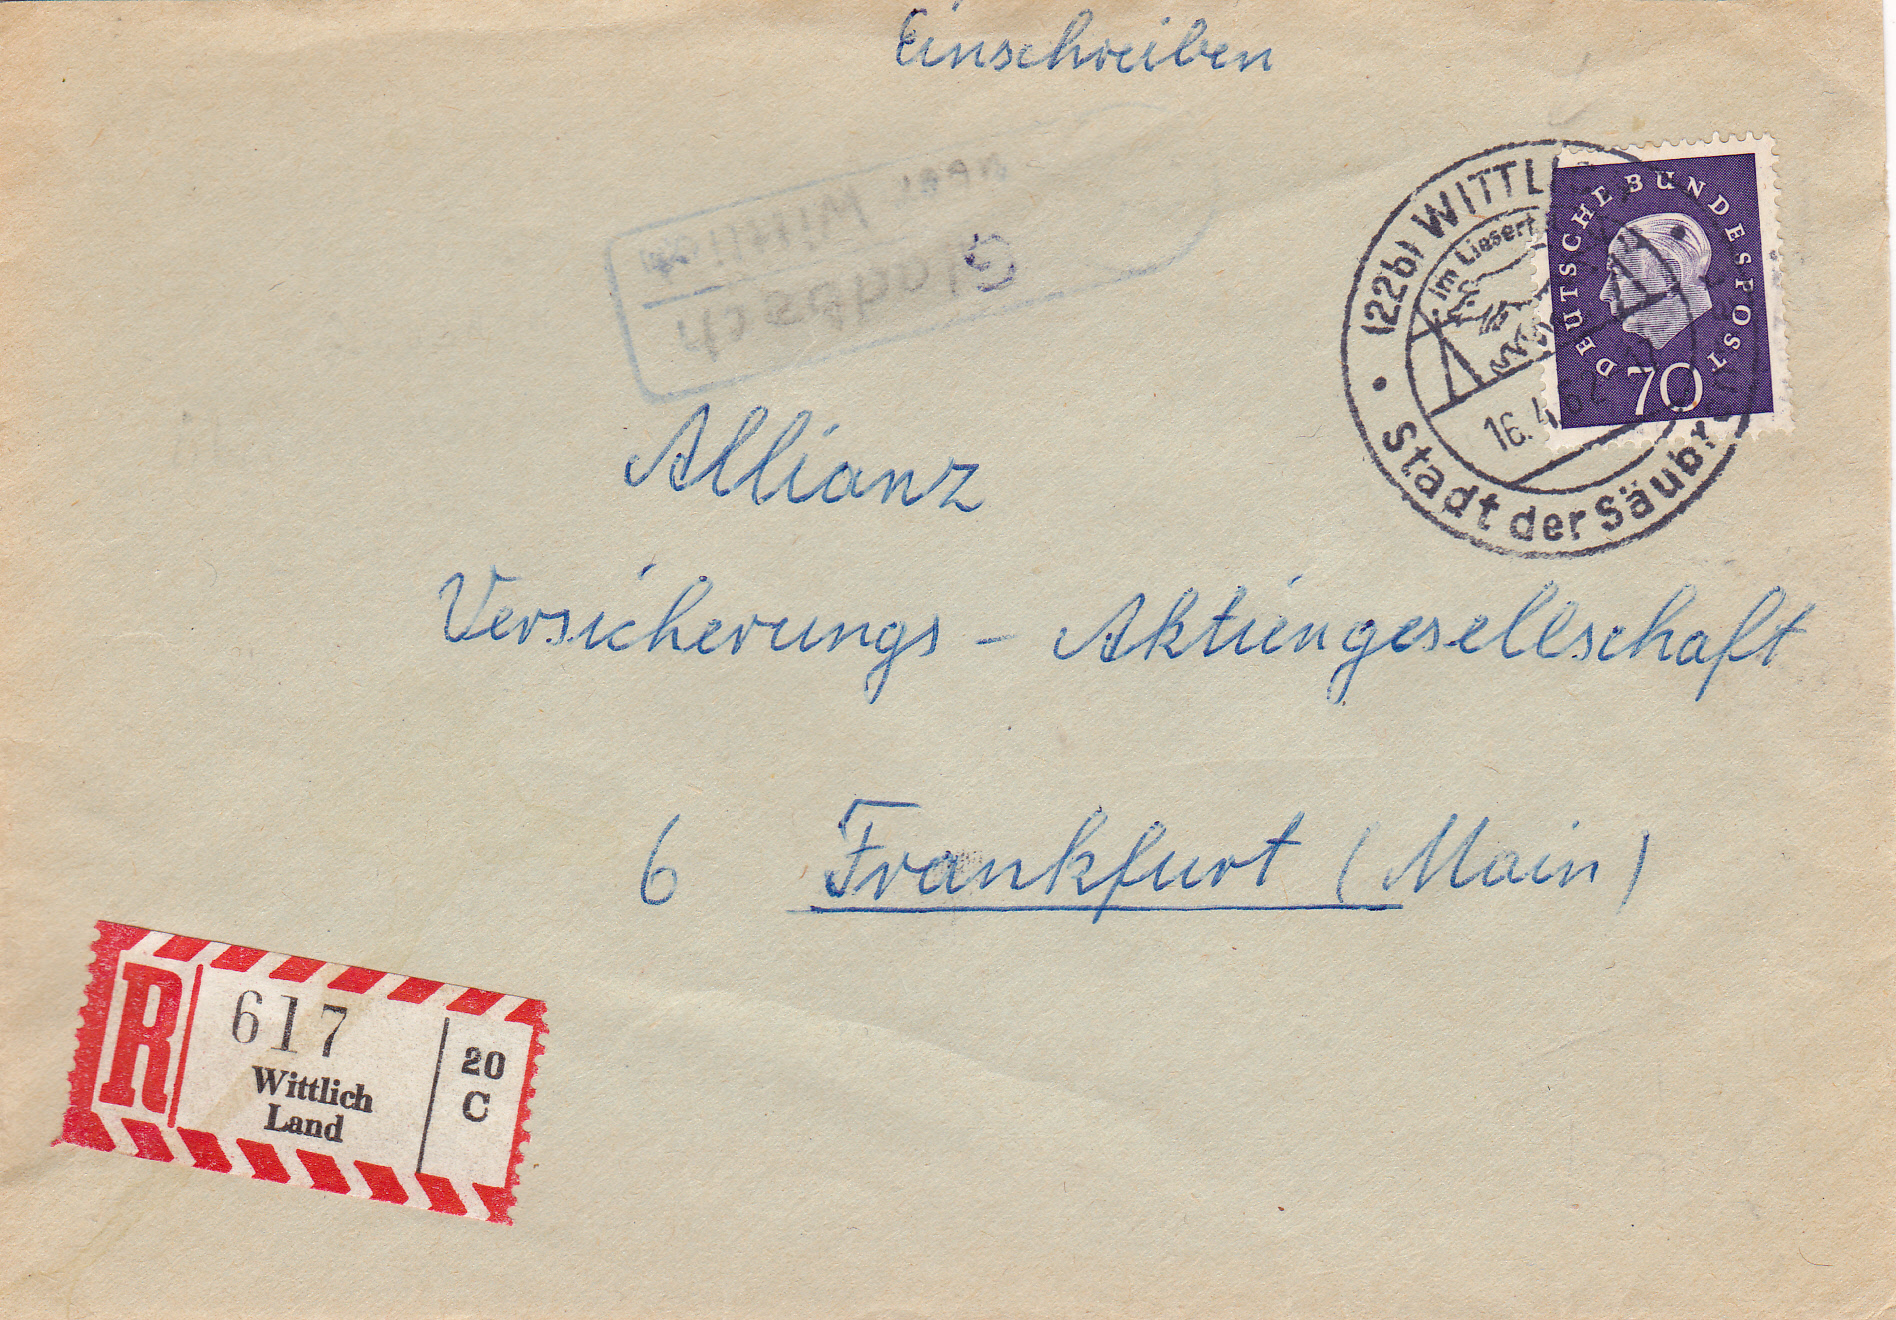 Einschreiben
(22b) WITTL
Im Liesert
16.4.62
Stadt der Säubr
DEUTSCHE BUNDESPOST
70
Allianz
Versicherungs - Aktiengesellschaft
6 Frankfurt (Main)
R
617
Wittlich
Land
20
C